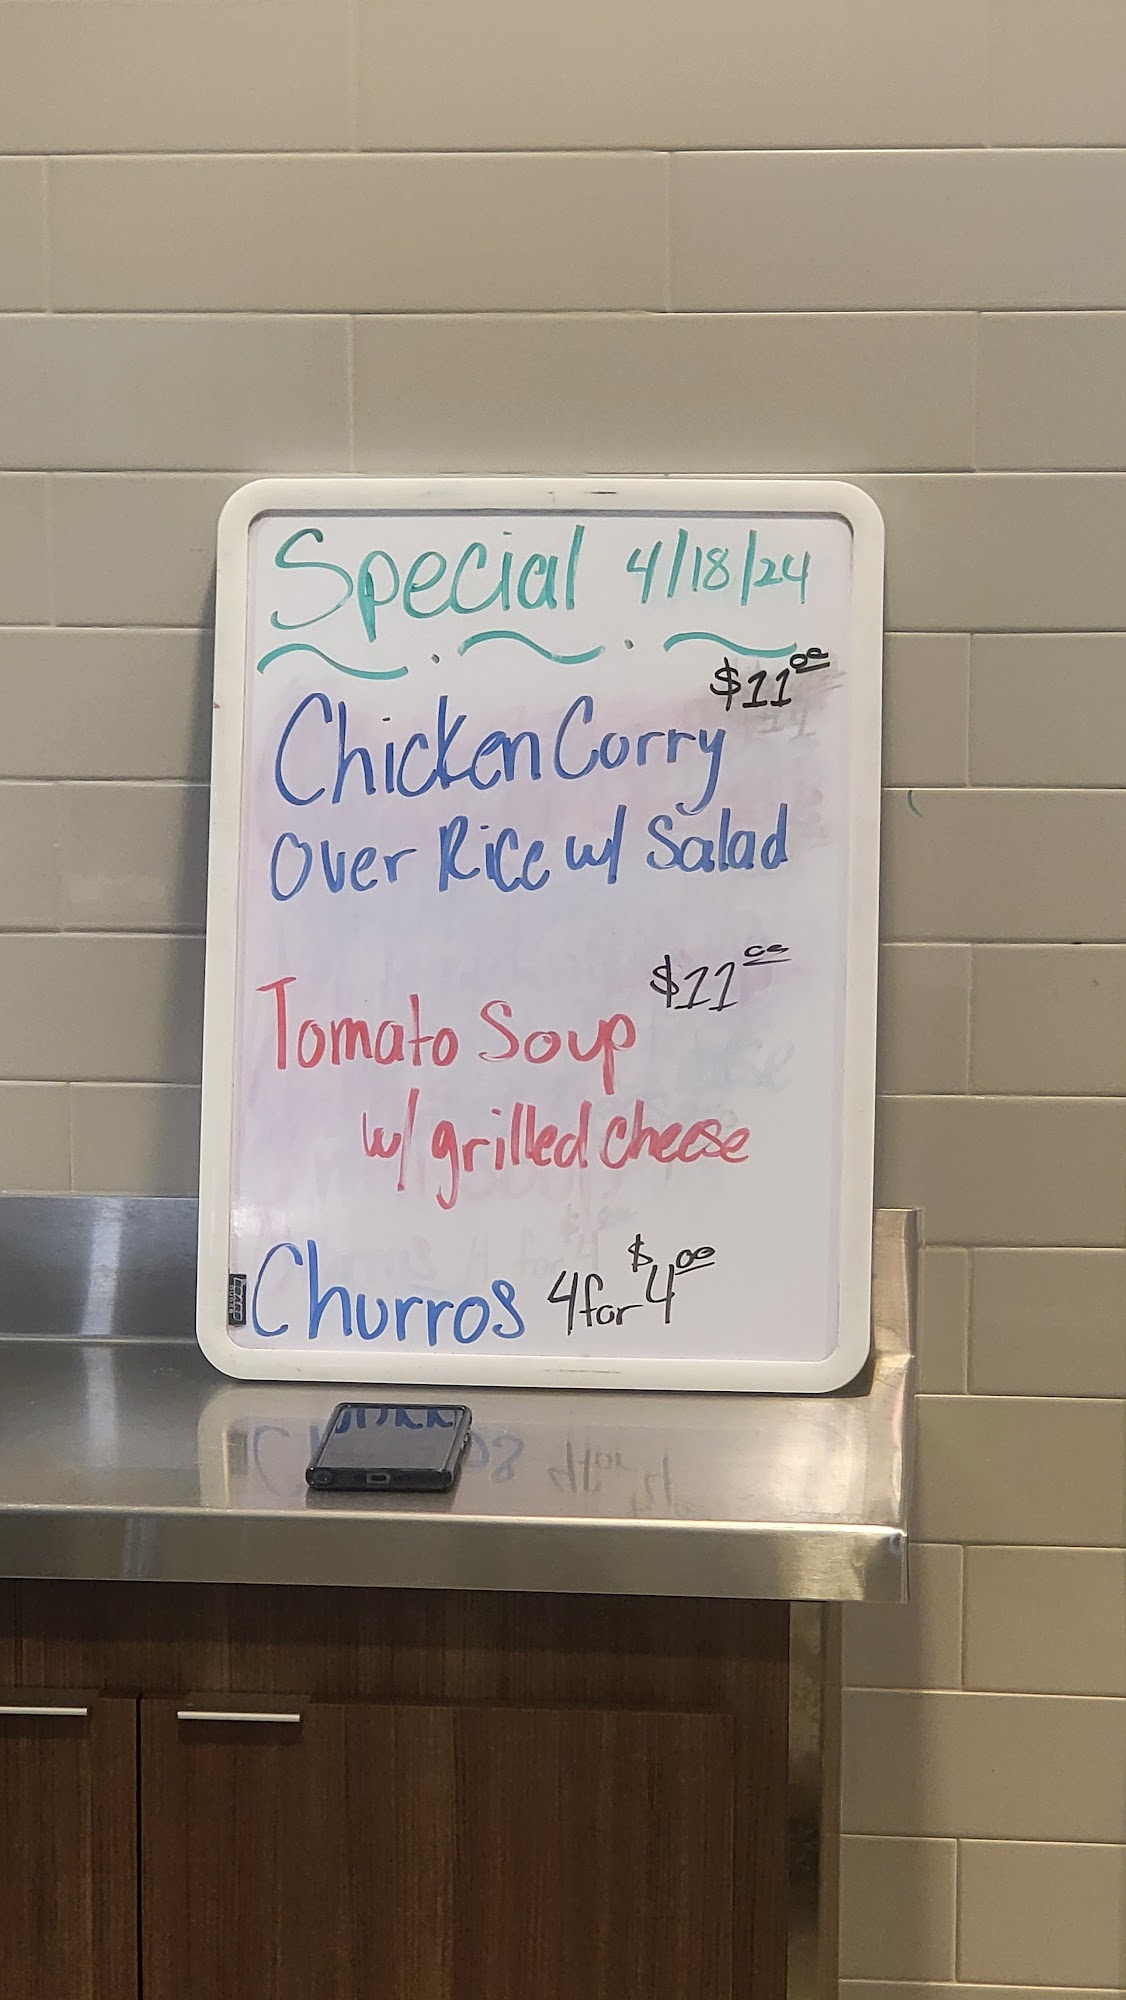 Special 4/18/24
$11.00
Chicken Curry
Over Rice w/ Salad
$11.00
Tomato Soup
w/ grilled cheese
Churros 4 for $4.00